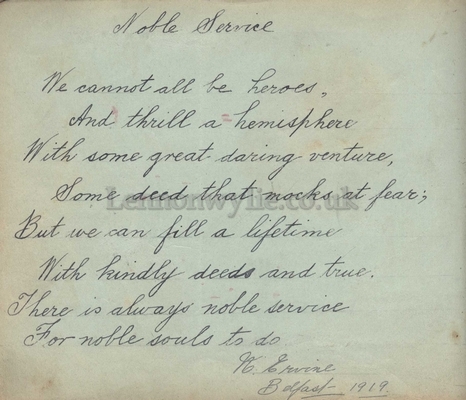 Noble Service
We cannot all be heroes,
And thrill a hemisphere
With some great daring venture,
Some deed that mocks at fear;
But we can fill a lifetime
With kindly deeds and true.
There is always noble service
For noble souls to do
Lennonwylie.co.uk
K. Ervine
Belfast 1919.